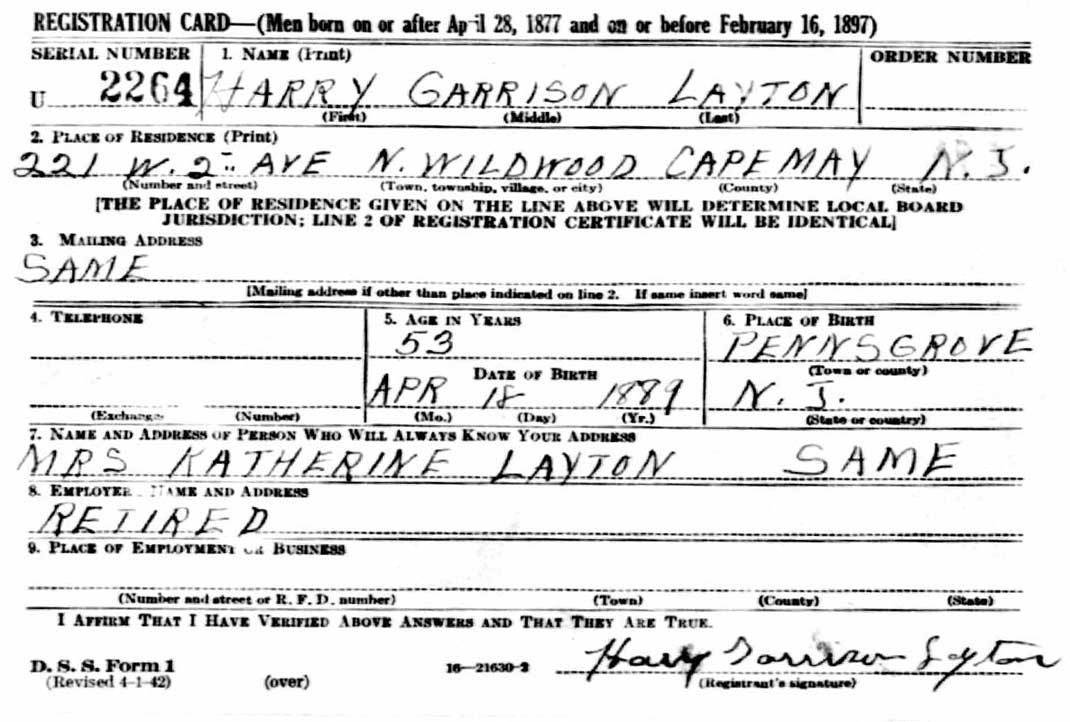 REGISTRATION CARD—(Men born on or after April 28, 1877 and on or before February 16, 1897)
SERIAL NUMBER 1. NAME (Print) ORDER NUMBER
U 2264 HARRY GARRISON LAYTON
(First) (Middle) (Last)
2. PLACE OF RESIDENCE (Print)
221 W. 2ND AVE N. WILDWOOD CAPE MAY N. J.
(Number and street) (Town, township, village, or city) (County) (State)
[THE PLACE OF RESIDENCE GIVEN ON THE LINE ABOVE WILL DETERMINE LOCAL BOARD
JURISDICTION; LINE 2 OF REGISTRATION CERTIFICATE WILL BE IDENTICAL]
3. MAILING ADDRESS
SAME
[Mailing address if other than place indicated on line 2. If same insert word same]
4. TELEPHONE 5. AGE IN YEARS 6. PLACE OF BIRTH
53 PENNSGROVE
DATE OF BIRTH (Town or county)
APR 18 1889 N. J.
(Exchange) (Number) (Mo.) (Day) (Yr.) (State or country)
7. NAME AND ADDRESS OF PERSON WHO WILL ALWAYS KNOW YOUR ADDRESS
MRS KATHERINE LAYTON SAME
8. EMPLOYER'S NAME AND ADDRESS
RETIRED
9. PLACE OF EMPLOYMENT OR BUSINESS
(Number and street or R. F. D. number) (Town) (County) (State)
I AFFIRM THAT I HAVE VERIFIED ABOVE ANSWERS AND THAT THEY ARE TRUE.
D. S. S. Form 1 16—21630-2 Harry Garrison Layton
(Revised 4-1-42) (over) (Registrant's signature)